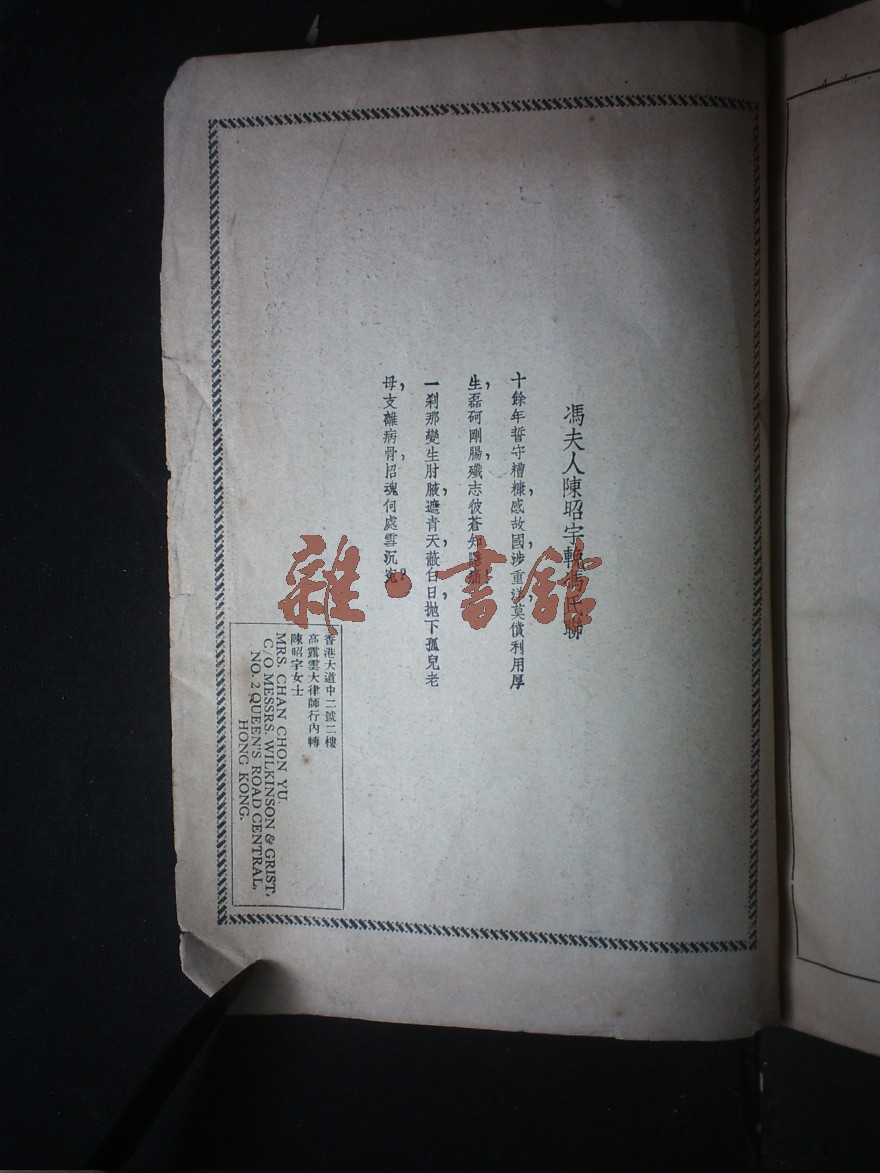 馮夫人陳昭宇輓馮氏聯
十餘年誓守糟糠，感故國，涉重洋，莫償利用厚
生，磊砢剛腸，殲志彼蒼知隱痛！
一剎那變生肘腋，遮青天，蔽白日，拋下孤兒老
母，支離病骨，招魂何處雪沉寃？
香港大道中二號二樓
高露雲大律師行內轉
陳昭宇女士
MRS. CHAN CHON YU.
C/O MESSRS. WILKINSON & GRIST,
NO. 2 QUEEN'S ROAD CENTRAL,
HONG KONG.
雜·書館